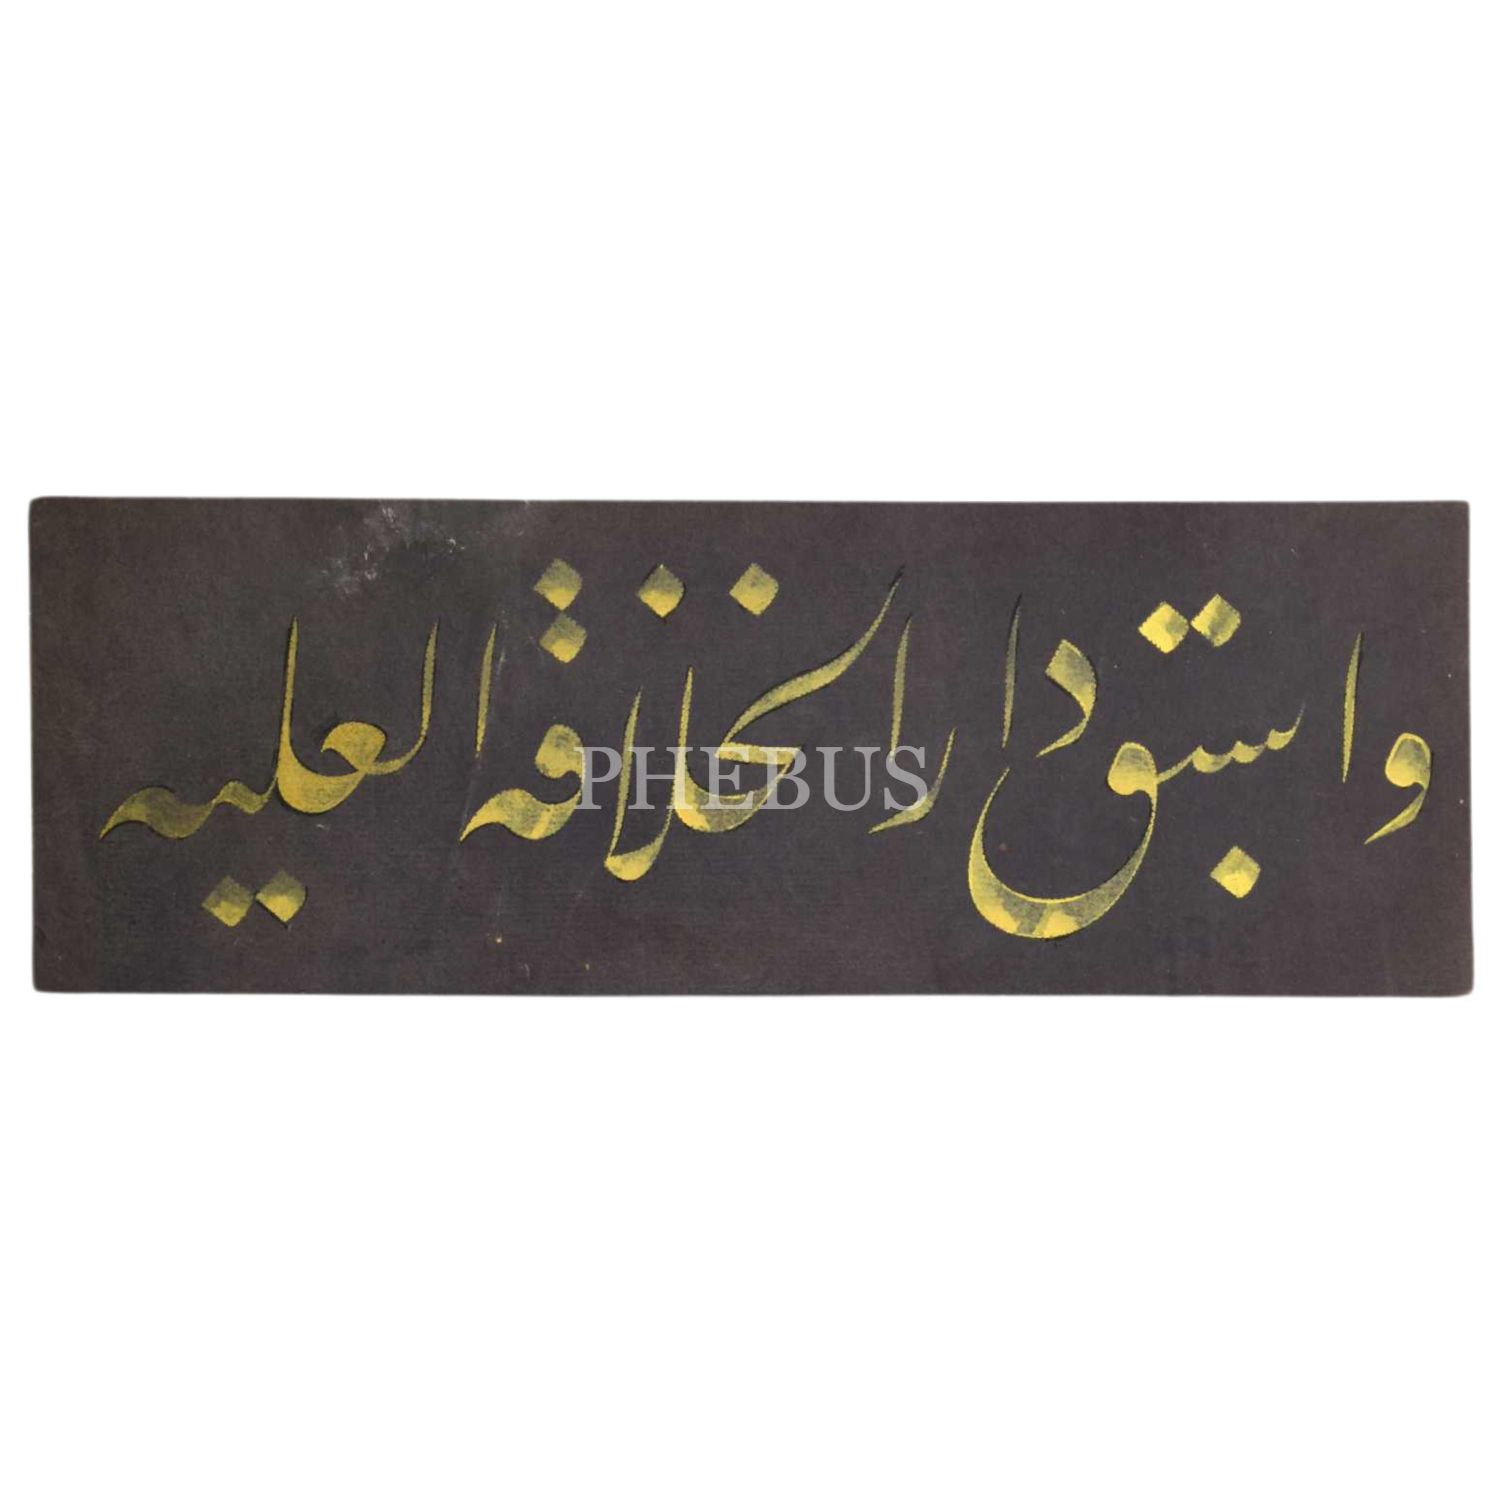 وابسق دار الخلافة العليه
PHEBUS